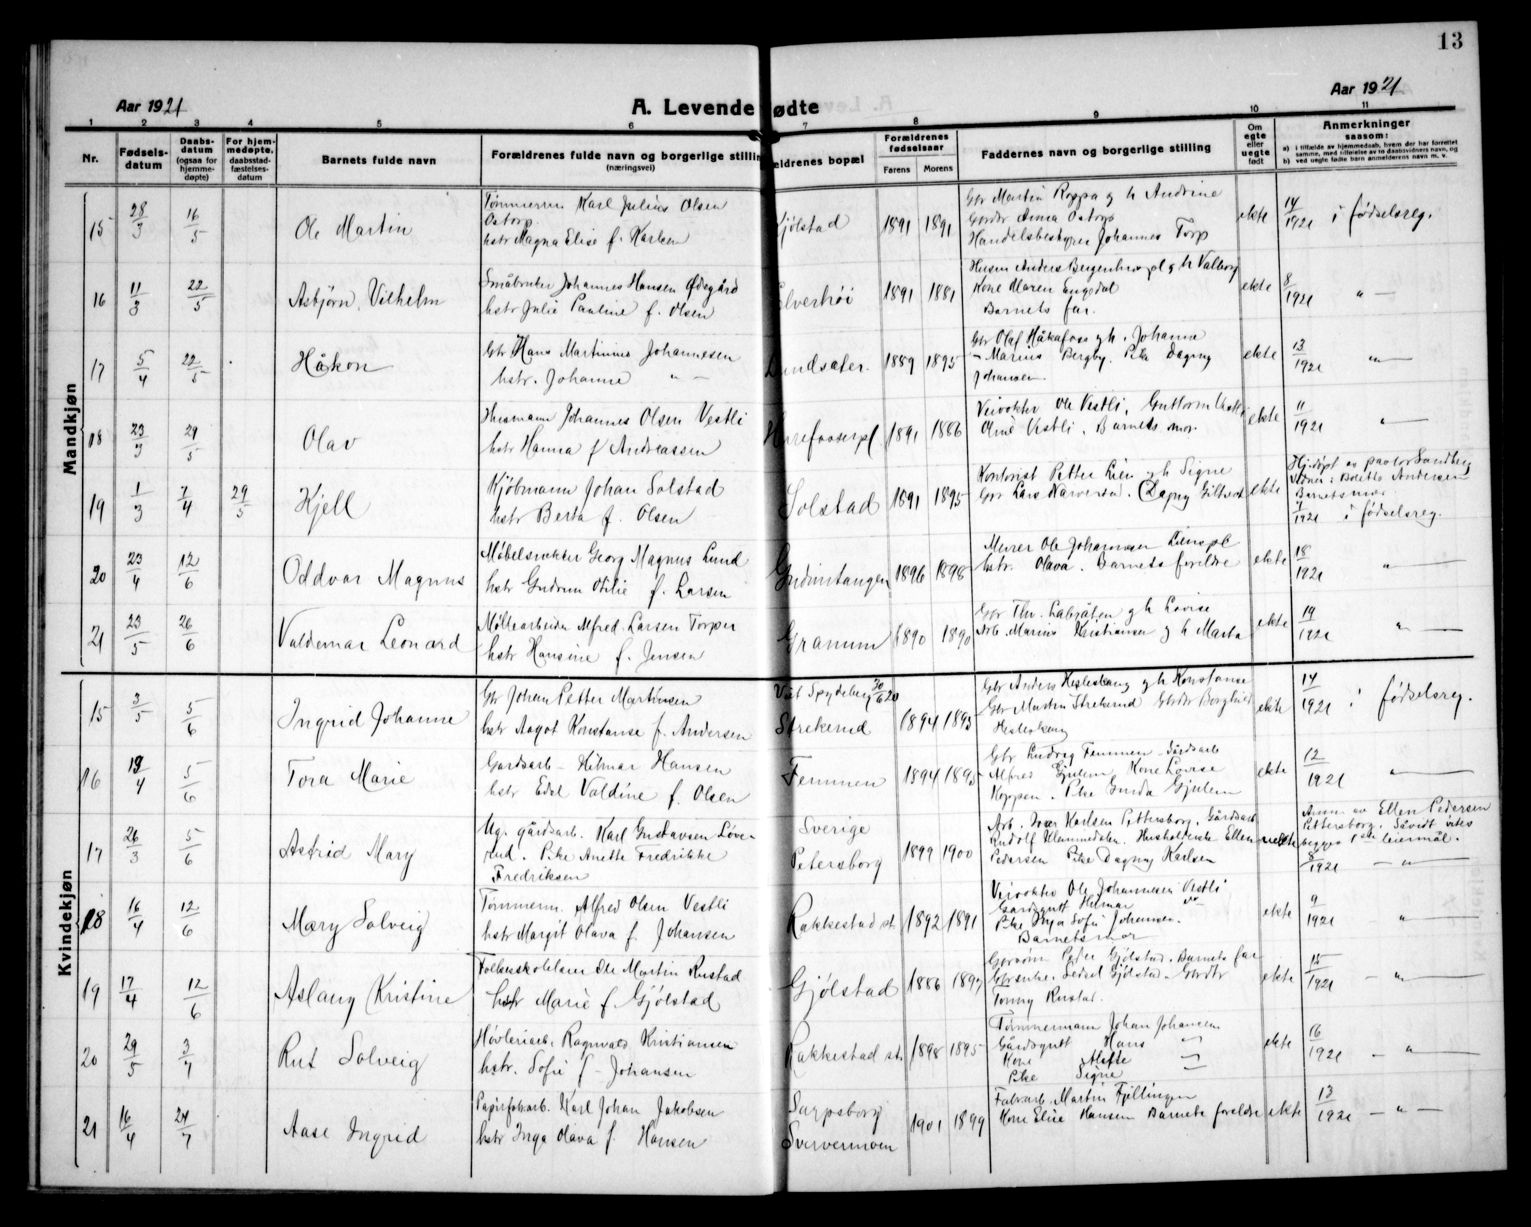 13
Aar 1921
A. Levende fødte
Aar 1921
1 2 3 4 5 6 7 8 9 10 11
Nr.
Fødsels-
datum
Daabs-
datum
(ogsaa for
hjemme-
døpte)
For hjem-
medøpte,
daabsstad-
fæstelses-
datum
Barnets fulde navn
Forældrenes fulde navn og borgerlige stilling
(næringsvei)
ældrenes bopæl
Forældrenes
fødselsaar
Farens Morens
Faddernes navn og borgerlige stilling
Om
egte
eller
uegte
født
Anmerkninger
saasom:
Mandkjøn
15 28/3 16/5 Ole Martin
Tømmermn Karl Julius Olsen
Ostorp
hstr Magna Elise f. Karlsen
Gjølstad 1891 1891
Gbr Martin Roppa g h Andrine
Gbrdtr Anna Ostorp
Handelsbestyrer Johannes Torp
ekte 14/1921 i fødselsreg.
16 11/3 22/5 Asbjørn Vilhelm
Småbruker Johannes Hansen Ødegård
hstr Julie Pauline f. Olsen
Elverhöi 1891 1881
Kone Maren Engsdal
Barnets far.
ekte 8/1921 " —
17 5/4 22/5 Håkon
Gbr Hans Martinius Johannesen
hstr. Johanne " —
Lundsæter. 1889 1895
Gbr Olaf Håkafoss g h. Johanne
— Marius Bergby. Pike Dagny
Johansen.
ekte 13/1921 " —
18 23/3 29/5 Olav
Husmann Johannes Olsen Vestli
hstr Hanna f Andreassen
1891 1886
Veivokter Ole Vestli, Guttorm Vestli
Oline Vestli. Barnets mor.
ekte 11/1921 " —
19 1/3 7/4 29/5 Kjell
Kjöbmann Johan Solstad
hstr Berta f. Olsen
Solstad 1891 1895
Kontorist Petter Lien g h Signe
Gbr Lars Narverud. Dagny
ekte
Hj.døpt av pastor Sandberg
Vidner: Bolette Andersen
Barnets mor
7/1921 i fødselsreg.
20 23/4 12/6 Oddvar Magnus
Møbelsnekker Georg Magnus Lund
hstr Gudrun Otilie f. Larsen
Gudimtangen 1896 1898
Murer Ole Johannesen Lienspl
hstr. Olava. Barnets foreldre
ekte 18/1921 " —
21 23/5 26/6 Valdemar Leonard
Møllearbeider Alfred Larsen Torper
hstr Hansine f. Jensen
Gramum 1890 1890
Gbr Thv. Labråten g h Lovise
Arb. Marius Kristiansen g h Marta
ekte 19/1921 " —
Kvindekjøn
15 3/5 5/6 Ingrid Johanne
Gbr Johan Petter Martinsen
hstr Aagot Konstanse f. Andersen
Viet Spydeberg 30/6 20
Strekerud 1894 1895
Gbr Anders Hesleskaug g h Konstanse
Gbr Martin Strekerud Gbrdtr Borghild
Hesleskaug
ekte 14/1921 i fødselsreg.
16 19/4 5/6 Tora Marie
Gardsarb — Hilmar Hansen
hstr Edel Valdine f. Olsen
Femmen 1894 1895
Gbr Ludvig Femmen — Gårdsarb
Alfred Gjulem Kone Lovise
Koppen. Pike Gunda Gjulem
ekte 12/1921 " —
17 26/3 5/6 Astrid Mary
Ug. gårdsarb. Karl Gustavsen Løve-
rud. Pike Anette Fredrikke
Fredriksen
Sverige
Petersborg 1899 1900
Arb. Ivar Karlsen Pettersborg. Gårdsarb
Rudolf Klemmetsdal. Husholderske Ellen
Pedersen Pike Dagny Karlsen
uekte
Anm. av Ellen Pedersen
Pettersborg. Såvidt vites
begges 1ste leiermål.
8/1921 — " —
18 16/4 12/6 Mary Solveig
Tømmerm. Alfred Olsen Vestli
hstr Margit Olava f. Johansen
Rakkestad st. 1892 1891
Veivokter Ole Johannesen Vestli
Gardsgutt Hilmar " —
Pike Inga Sofie Johansen.
Barnets mor
ekte 9/1921 — " —
19 17/4 12/6 Aslaug Kristine
Folkeskolelærer Ole Martin Rustad
hstr Marie f. Gjølstad
Gjølstad 1886
Peter Gjølstad. Barnets far
Gjølstad. Gbrdtr
Tonny Rustad.
ekte 15/1921 — " —
20 29/5 3/7 Rut Solveig
Høvleriarb. Ragnvald Kristiansen
hstr. Sofie f — Johansen
Rakkestad st. 1898 1895
Tømmermann Johan Johansen
Gårdsgutt Hans " —
Kone Alette —
Pike Signe —
ekte 16/1921 — " —
21 16/4 24/7 Aase Ingrid
Papirfabarb. Karl Johan Jakobsen
hstr Inga Olava f. Hansen
Sarpsborg
1901 1899
Fabrarb. Martin Fjellingen
Kone Elise Hansen Barnets foreldre
ekte 13/1921 — " —